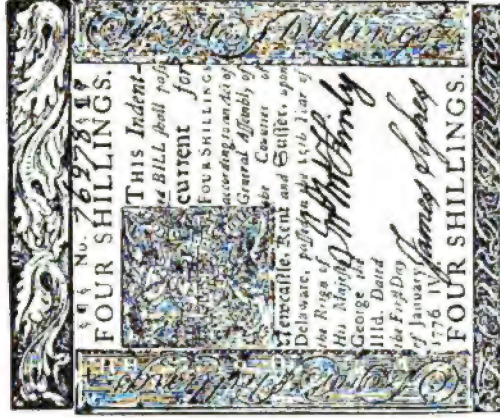 Four Shillings
No. 76978
FOUR SHILLINGS.
THIS Indent-
ed BILL shall pass
current for
FOUR SHILLINGS
according to an Act of
General Assembly of
the Counties of
Newcastle, Kent and Sussex, upon
Delaware, passed in the 15th Year of
the Reign of
His Majesty
George the
IIId. Dated
the First Day
of January
1776
James Sykes
FOUR SHILLINGS.
Four Shillings